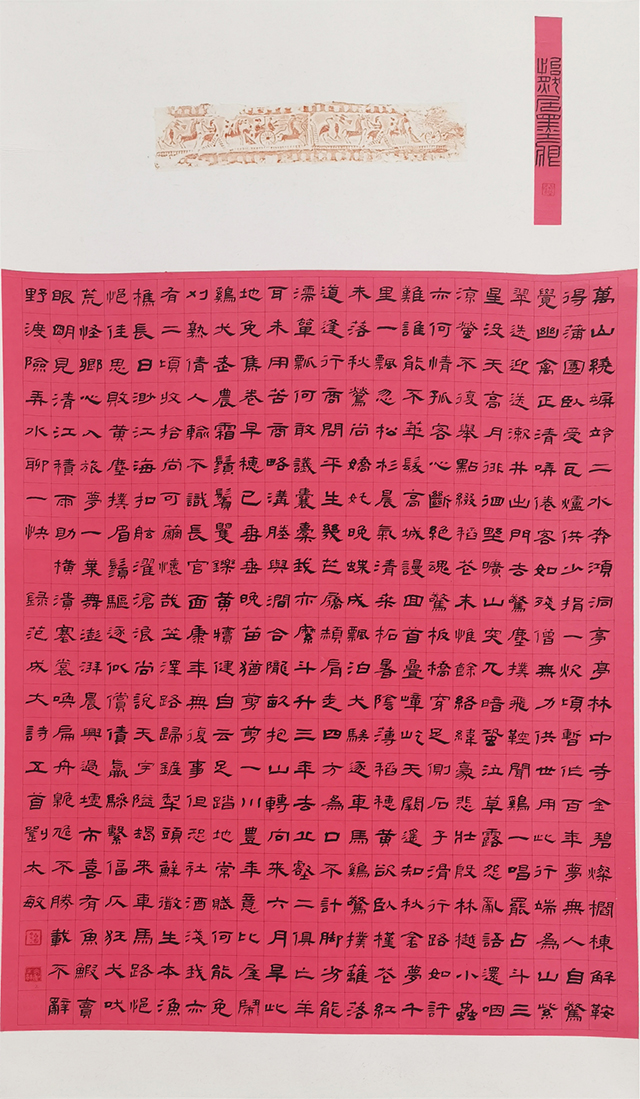 萬山繞竮竛二水奔澒洞亭亭林中寺金碧燦櫩棟解鞍
得蒲團臥受瓦爐供少捐一炊頃暫作百年夢無人自驚
覺幽禽正清哢倦客如殘僧無力供世用此行端為山紫
翠迭迎送漱井出門去驚塵撲飛鞚聞雞一唱罷占斗三
星沒天高月徘徊野曠山突兀暗蛩泣草露怨亂語還咽
涼螢不復舉點綴稻花末惟餘絡緯豪悲壯殷林樾小蟲
亦何情孤客心斷絕魂驚板橋穿足側石子滑行路如許
難誰能不華髮高城謾回首疊嶂屹天關還如秋衾夢千
里一飄忽松杉晨氣清桑柘暑陰薄稻穗黃欲臥槿花紅
未落秋鶯尚嬌奼晚蝶成飄泊犬駭逐車馬雞驚撲籬落
道逢行商問平生幾芒屩頳肩走四方為口不計腳劣能
濡簞瓢何敢議囊橐我亦縻斗升三年去丘壑二俱亡羊
耳未用苦商略溝塍與澗合隴畝抱山轉向來六月旱此
地免焦卷早穗已垂垂晚苗猶剪剪一川豐年意比屋鬧
鷄犬耋農霜鬚鬢矍鑠黃犢健自云足踏地常賦何能免
刈熟倩人輸不識長官面康年無復事但恐社酒淺我亦
有二頃收拾尚可繭懷哉笠澤路歸鋤犁頭蘚微生本漁
樵長日渺江海扣舷濯滄浪尚說天宇隘朅來車馬路悒
悒佳思敗黃塵撲眉鬚驅逐似償債羸驂繫偪仄狂犬吠
荒怪鄉心入旅夢一葉舞澎湃晨興過墟市喜有魚鰕賣
眼明見清江積雨助橫潰褰裳喚扁舟臲卼不勝載不辭
野渡險弄水聊一快 錄范成大詩五首劉太敏